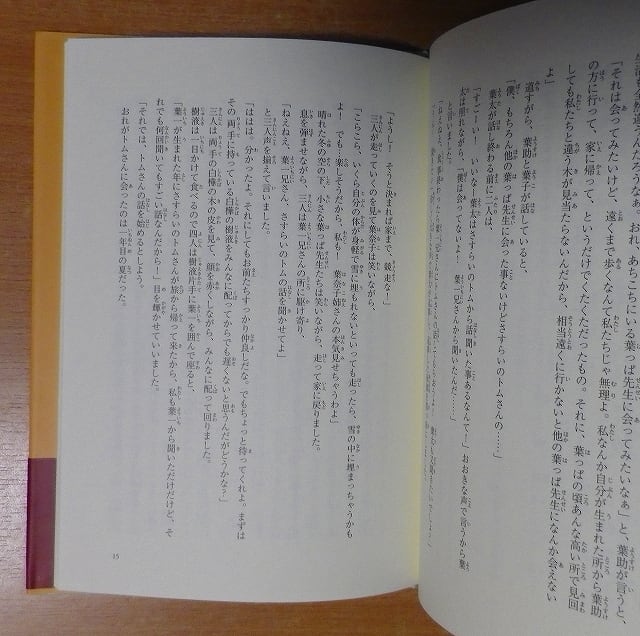 「それは会ってみたいけど、遠くまで歩くなんて私たちじゃ無理よ。私なんか自分が生まれた所から葉助
の方に行って、家に帰って、というだけでくたくただったもの。それに、葉っぱの頃あんな高い所で見回
しても私たちと違う木が見当たらないんだから、相当遠くに行かないと他の葉っぱ先生になんか会えない
よ」
道すがら、葉助と葉子が話していると、
「僕、もちろん仲間の葉っぱ先生に会った事ないけどさすらいのトムさんの……」
葉太が話し終わる前に二人は、
「すごーい！ いいな！葉太はさすらいのトムから話聞いた事あるなんて！」おおきな声で言うから葉
太は照れながら、「僕は会ってないよ！ 葉一兄さんから聞いたんだ……」
と言いました。
「ようし！ そうと決まれば家まで競走な！」
三人が走っていくのを見て葉奈子は笑いながら、
「こらこら、いくら自分の体が身軽で雪に埋もれないといっても走ったら、雪の中に埋まっちゃうかも
よ！ でも、楽しそうだから、私も！ 葉奈子姉さんの本気見せちゃうわよ」
晴れた冬の空の下、小さな葉っぱ先生たちは笑いながら、走って家に戻りました。
息を弾ませながら、三人は葉一兄さんの所に駆け寄り、
「ねえねえ、葉一兄さん、さすらいのトムの話を聞かせてよ」
と三人声を揃えて言いました。
「ははは、分かったよ。それにしてもお前たちすっかり仲良しだな。でもちょっと待ってくれよ。まずは
その両手に持っている白樺の樹液をみんなに配ってからでも遅くないと思うんだがどうかな？」
三人は両手の白樺の木の皮を見て、顔を赤くしながら、みんなに配って回りました。
樹液は一日かけて食べるので四人は樹液片手に葉一を囲んで座ると、
「葉一が生まれた年にさすらいのトムさんが旅から帰って来たから、私も葉一から聞いただけだけど、そ
れでも何回聞いてもすごい話なんだから！」目を輝かせていいました。
「それでは、トムさんの話を始めるとしよう。
おれがトムさんに会ったのは一年目の夏だった。
15